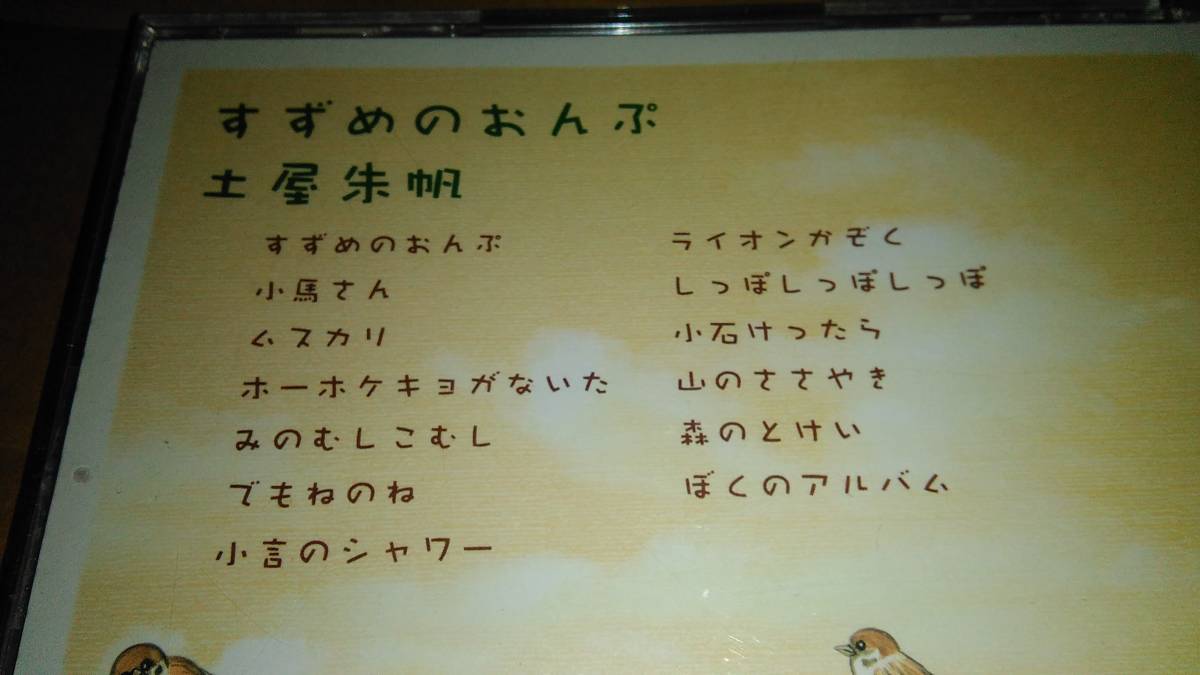 すずめのおんぷ
土屋朱帆
すずめのおんぷ
小馬さん
ムスカリ
ホーホケキョがないた
みのむしこむし
でもねのね
小言のシャワー
ライオンかぞく
しっぽしっぽしっぽ
小石けったら
山のささやき
森のとけい
ぼくのアルバム